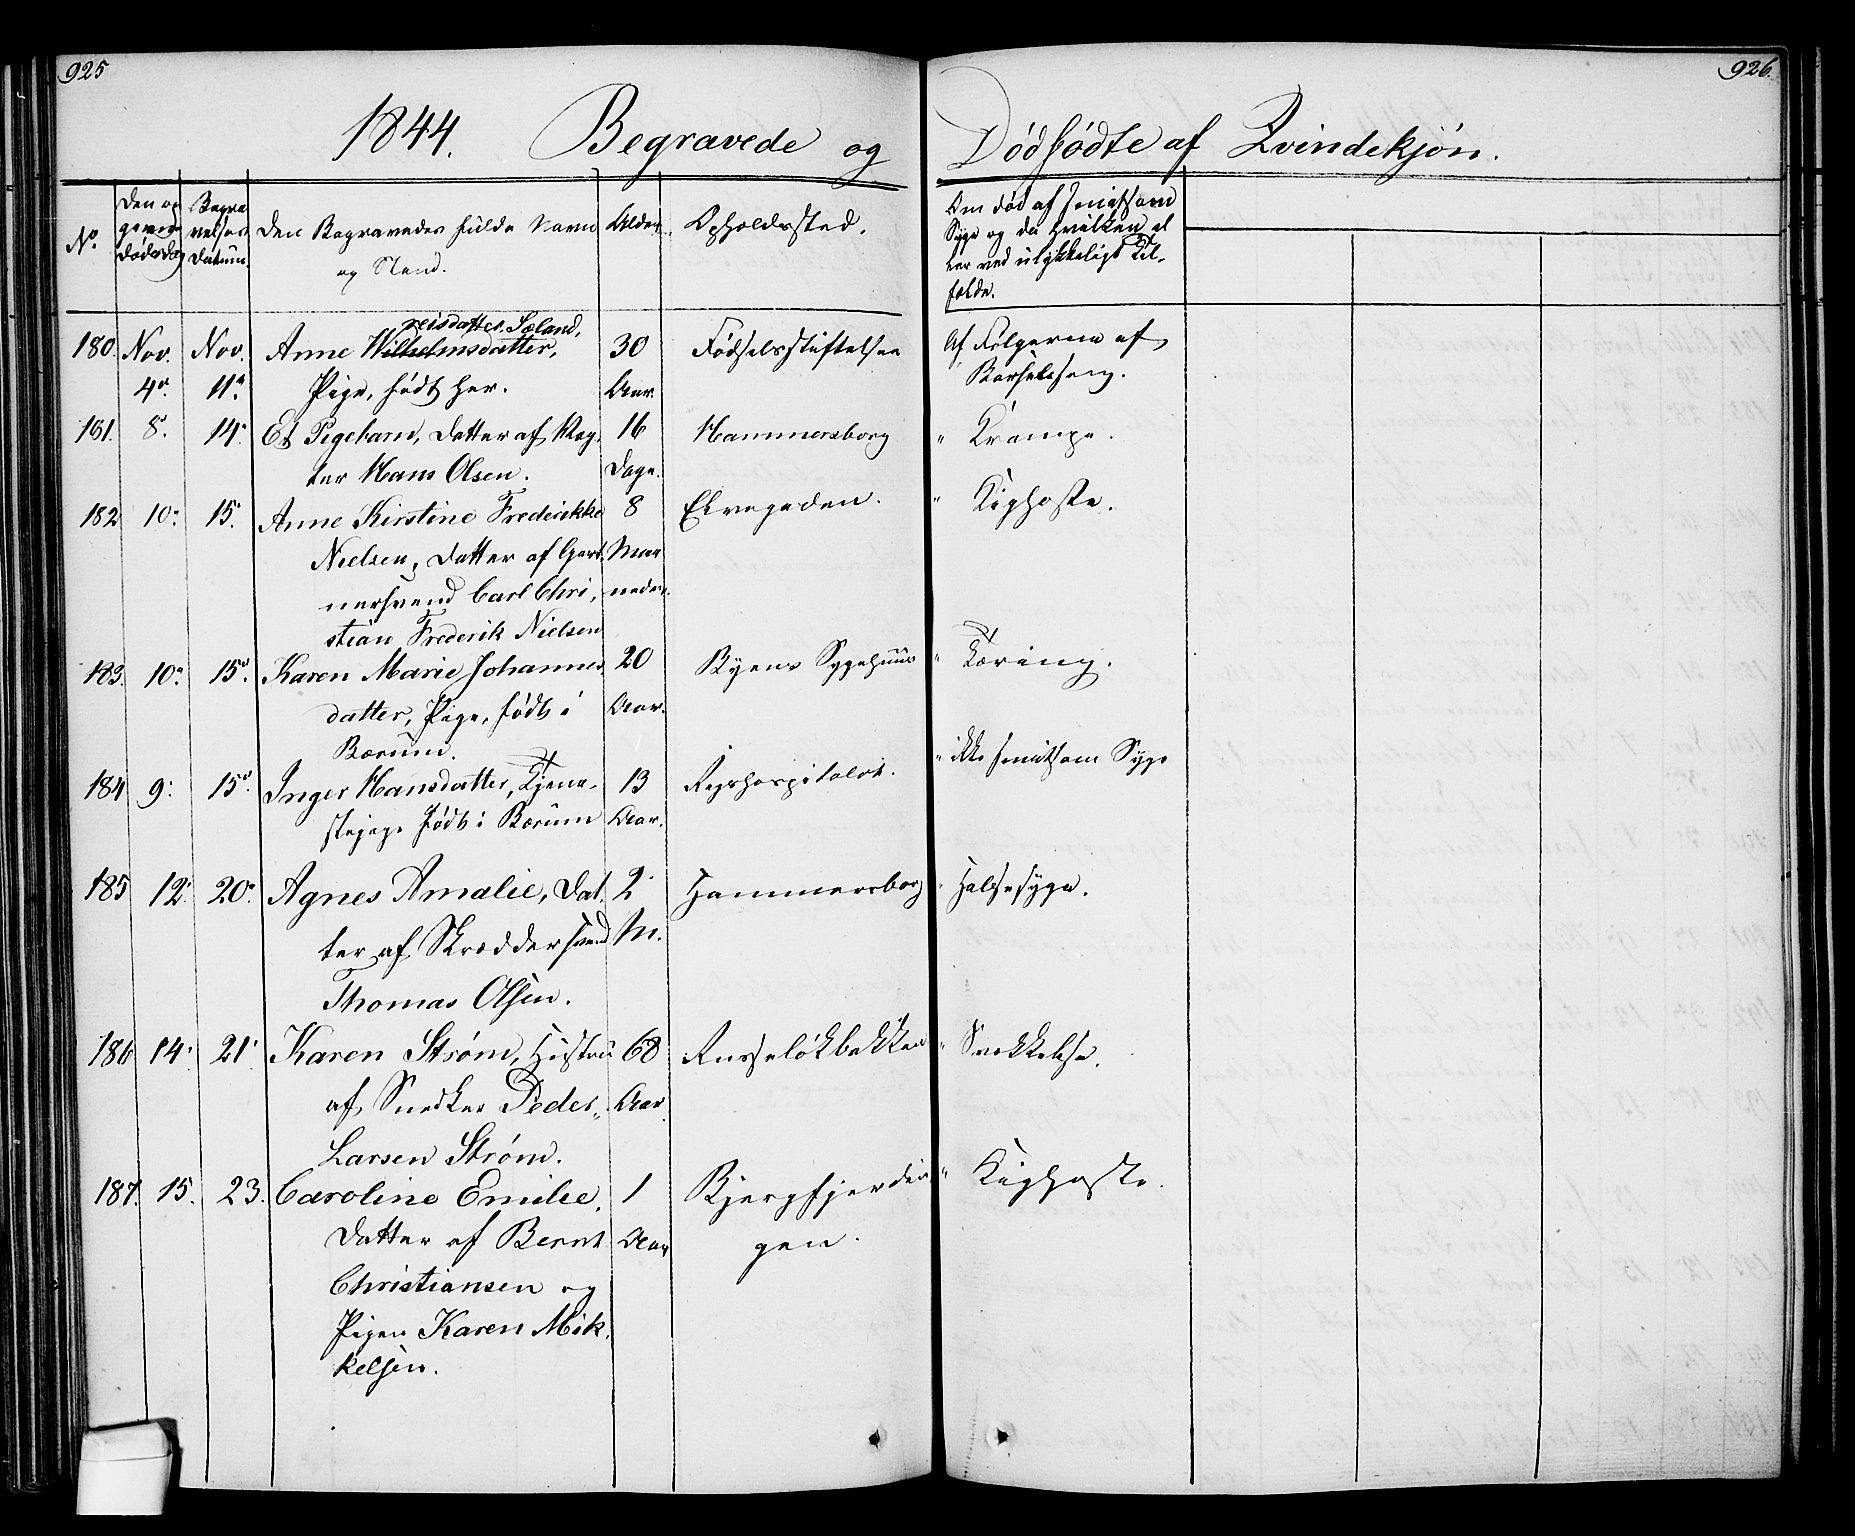 925
926.
1844. Begravede og Dødfødte af Qvindekjön.
No. Den opgivne Dødsdag Begravelses Datum. Den Begravedes fulde Navn og Stand. Alder. Opholdssted. Om død af smitsom Syge og da hvilken eller ved ulykkeligt Tilfælde.
180. Nov. 4de. Nov. 11te.
Anne Wilhelmsdatter, Sæland,
Pige, født her.
30 Aar. Fødselsstiftelsen Af Følgerne af Barselseng.
181. 8. 14.
Et Pigebarn, Datter af Rög-
ter Hans Olsen.
16 Dage. Hammersborg " Krampe.
182 10. 15.
Anne Kirstine Frederikke
Nielsen, Datter af Gart-
nersvend Carl Chri-
stian Frederik Nielsen
8 Maaneder. Elvegaden. " Kighoste.
183. 10. 15.
Karen Marie Johannes
datter, Pige, født i
Bærum.
20 Aar. Byens Sygehuus " Tæring.
184 9. 15.
Inger Hansdatter, Tjene-
stepige født i Bærum
13 Aar. Rigshospitalet. " ikke smitsom Syge
185 12. 20.
Agnes Amalie, Dat
ter af Skræddersvend
Thomas Olsen.
2 M. Hammersborg " Halssyge.
186 14. 21.
Karen Strøm, Hustru
af Snedker Peder
Larsen Strøm.
68 Aar Ruseløkbakken " Svækkelse.
187. 15. 23.
Caroline Emilie,
Datter af Bernt
Christiansen og
Pigen Karen Mik
kelsen.
1 Aar Bjergfjerdin
gen. " Kighoste.